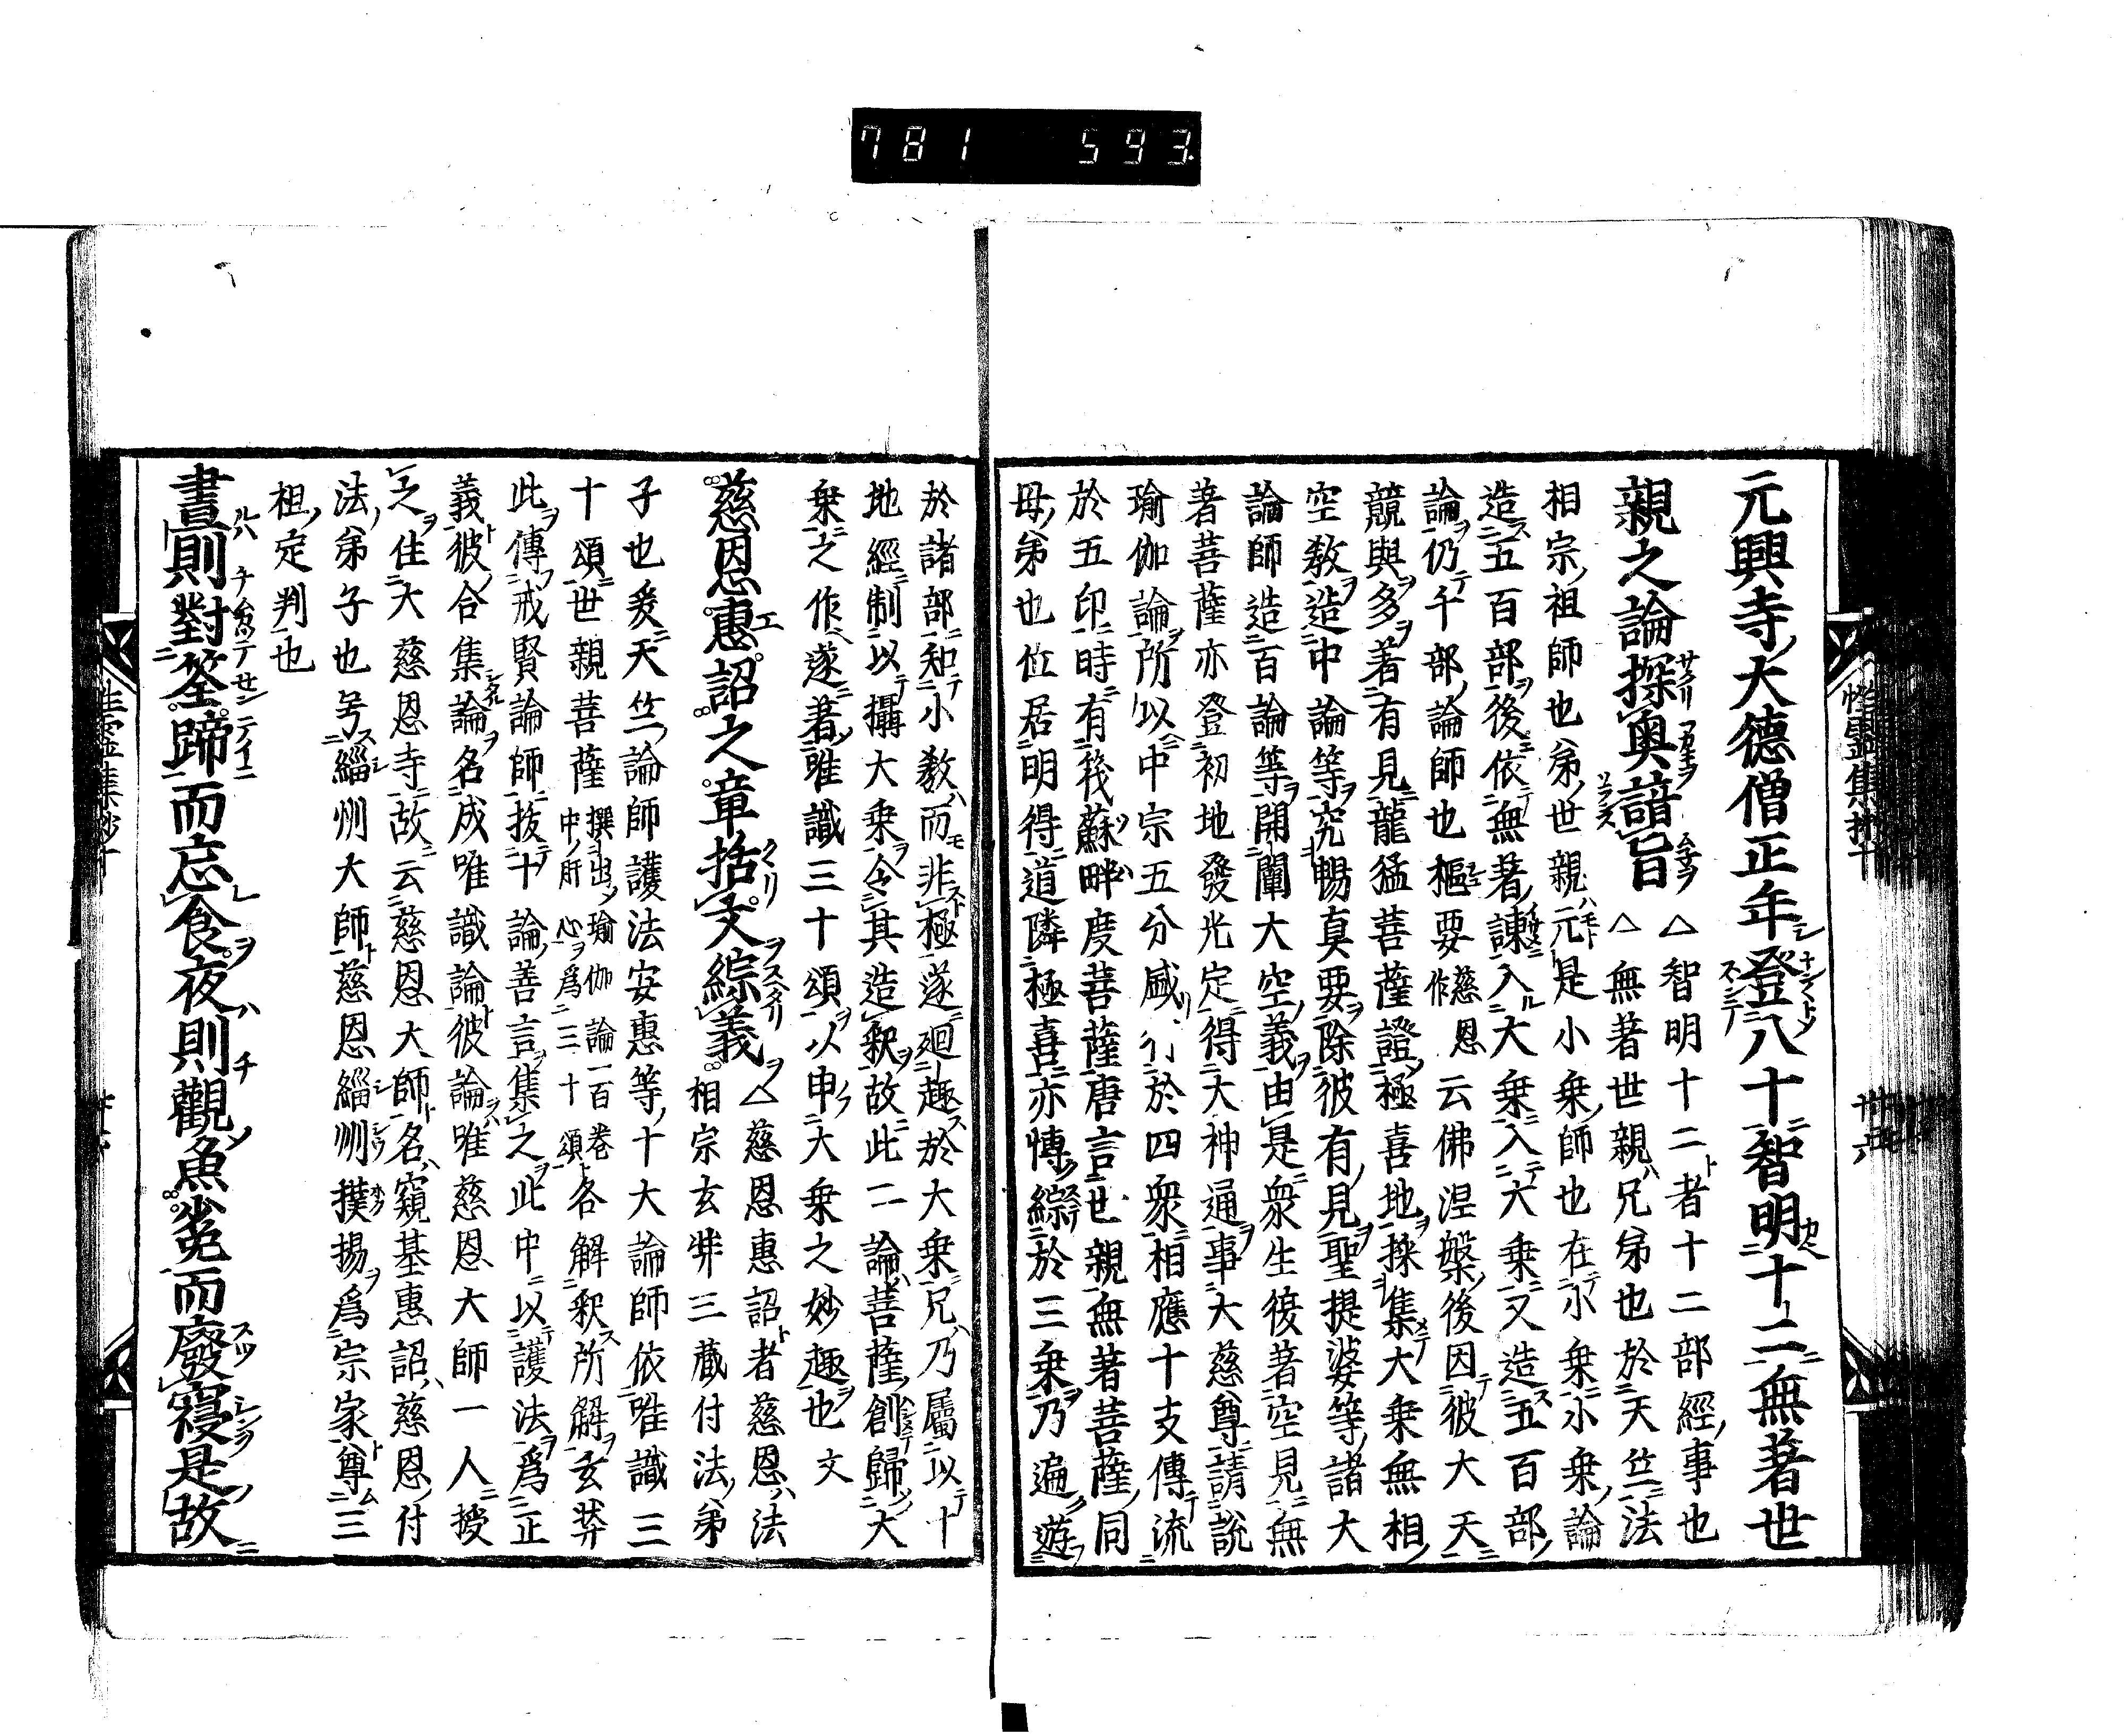 781 593
元興寺大德僧正年登八十智明十二無著世
親之論探奧諳旨
△智明十二者十二部經事也
△無著世親兄弟也於天竺法
相宗祖師也弟世親元是小乗師也在小乗小乗論
造五百部後依無著諌入大乗入大乗又造五百部
論仍千部論師也樞要慈恩作云佛涅槃後因彼大天
競與多著有見龍猛菩薩證極喜地採集大乗無相
空教造中論等究暢真要除彼有見聖提婆等諸大
論師造百論等開闡大空義由是衆生復著空見無
著菩薩亦登初地發光定得大神通事大慈尊請説
瑜伽論所以中宗五分咸行於四衆相應十支傳流
於五印時有筏蘇畔度菩薩唐言世親無著菩薩同
母弟也位居明得道隣極喜亦博綜於三乗乃遍遊
於諸部知小教而非極遂迴趣於大乗兄乃屬以十
地經制以攝大乗令其造釈故此二論菩薩創歸大
乗之作遂著唯識三十頌以申大乗之妙趣也文
慈恩惠詔之章括文綜義
△慈恩惠詔者慈恩法
相宗玄弉三蔵付法弟
子也爰天竺論師護法安惠等十大論師依唯識三
十頌世親菩薩撰出瑜伽論一百巻中肝心為三十頌各解釈所解玄弉
此傳戒賢論師抜十論善言集之此中以護法為正
義彼合集論名成唯識論彼論唯慈恩大師一人授
之住大慈恩寺故云慈恩大師名窺基惠詔慈恩付
法弟子也号緇州大師慈恩緇州撲揚為宗家尊三
祖定判也
晝則對筌蹄而忘食夜則觀魚兎而廢寑是故
性靈集抄十